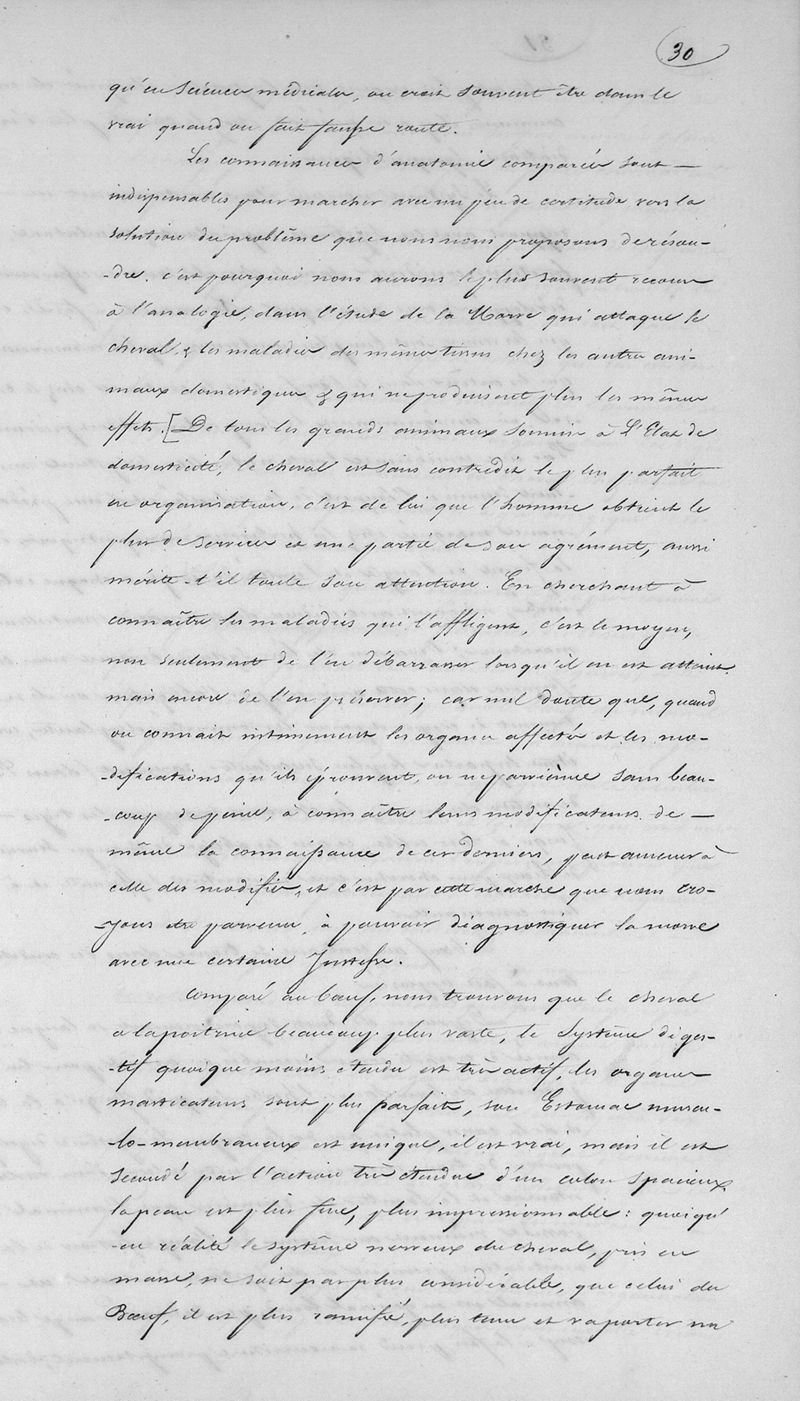 30
qu'en sciences médicales, on croit souvent être dans le
vrai quand on fait fausse route.
Les connaissances d'anatomie comparée sont —
indispensables pour marcher avec un peu de certitude vers la
solution du problême que nous nous proposons de résou-
-dre. c'est pourquoi nous aurons le plus souvent recours
à l'analogie, dans l'étude de la Morve qui attaque le
cheval, & les maladies des mêmes tissus chez les autres ani-
maux domestiques & qui ne produisent plus les mêmes
effets. [De tous les grands animaux soumis à l'Etat de
domesticité, le cheval est sans contredit le plus parfait
en organisation, c'est de lui que l'homme obtient le
plus de services et une partie de son agrément, aussi
mérite-t'il toute son attention. En cherchant à
connaître les maladies qui l'affligent, c'est le moyen,
non seulement de l'en débarrasser lorsqu'il en est atteint
mais encore de l'en préserver; car nul doute que, quand
on connait intimement les organes affectés et les mo-
-difications qu'ils éprouvent, on ne parvienne sans beau-
-coup de peine, à connaître leurs modificateurs. de —
même la connaissance de ces derniers, peut amener à
celle des modifiés, et c'est par cette marche que nous cro-
-yons être parvenu, à pouvoir diagnostiquer la morve
avec une certaine Justesse.
Comparé au bœuf, nous trouvons que le cheval
a la poitrine beaucoup plus vaste, le Système diges-
-tif quoique moins étendu est très actif, les organes
masticateurs sont plus parfaits, son Estomac muscu-
-lo-membraneux est unique, il est vrai, mais il est
secondé par l'action très étendue d'un colon spacieux,
la peau est plus fine, plus impressionnable: quoiqu'
-en réalité le système nerveux du cheval, pris en
masse, ne soit pas plus considérable, que celui du
Bœuf, il est plus ramifié, plus tenu et